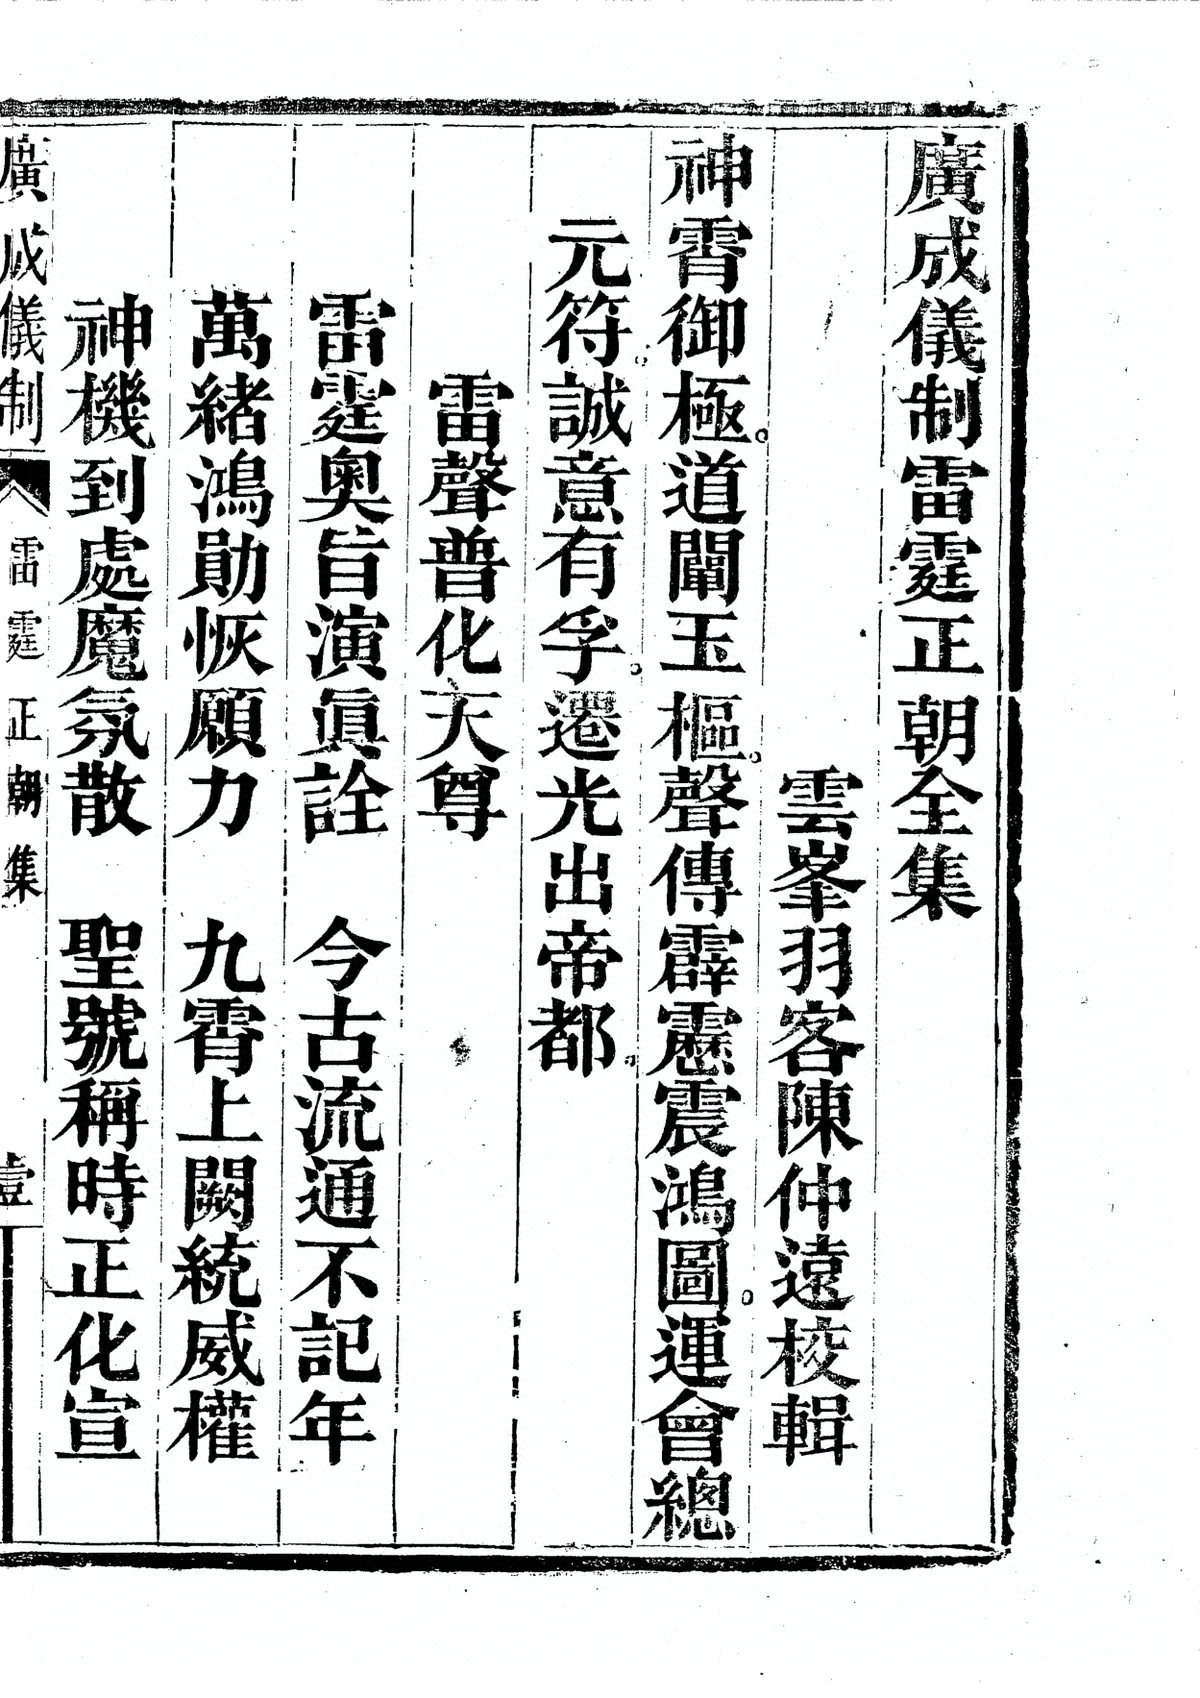 廣成儀制雷霆正朝全集
雲峯羽客陳仲遠校輯
神霄御極。道闡玉樞。聲傳霹靂震鴻圖。運會總
元符。誠意有孚。遷光出帝都。
雷聲普化天尊
雷霆奧旨演眞詮　今古流通不記年
萬緒鴻勛恢願力　九霄上闕統威權
神機到處魔氛散　聖號稱時正化宣
廣成儀制　雷霆正朝集　壹